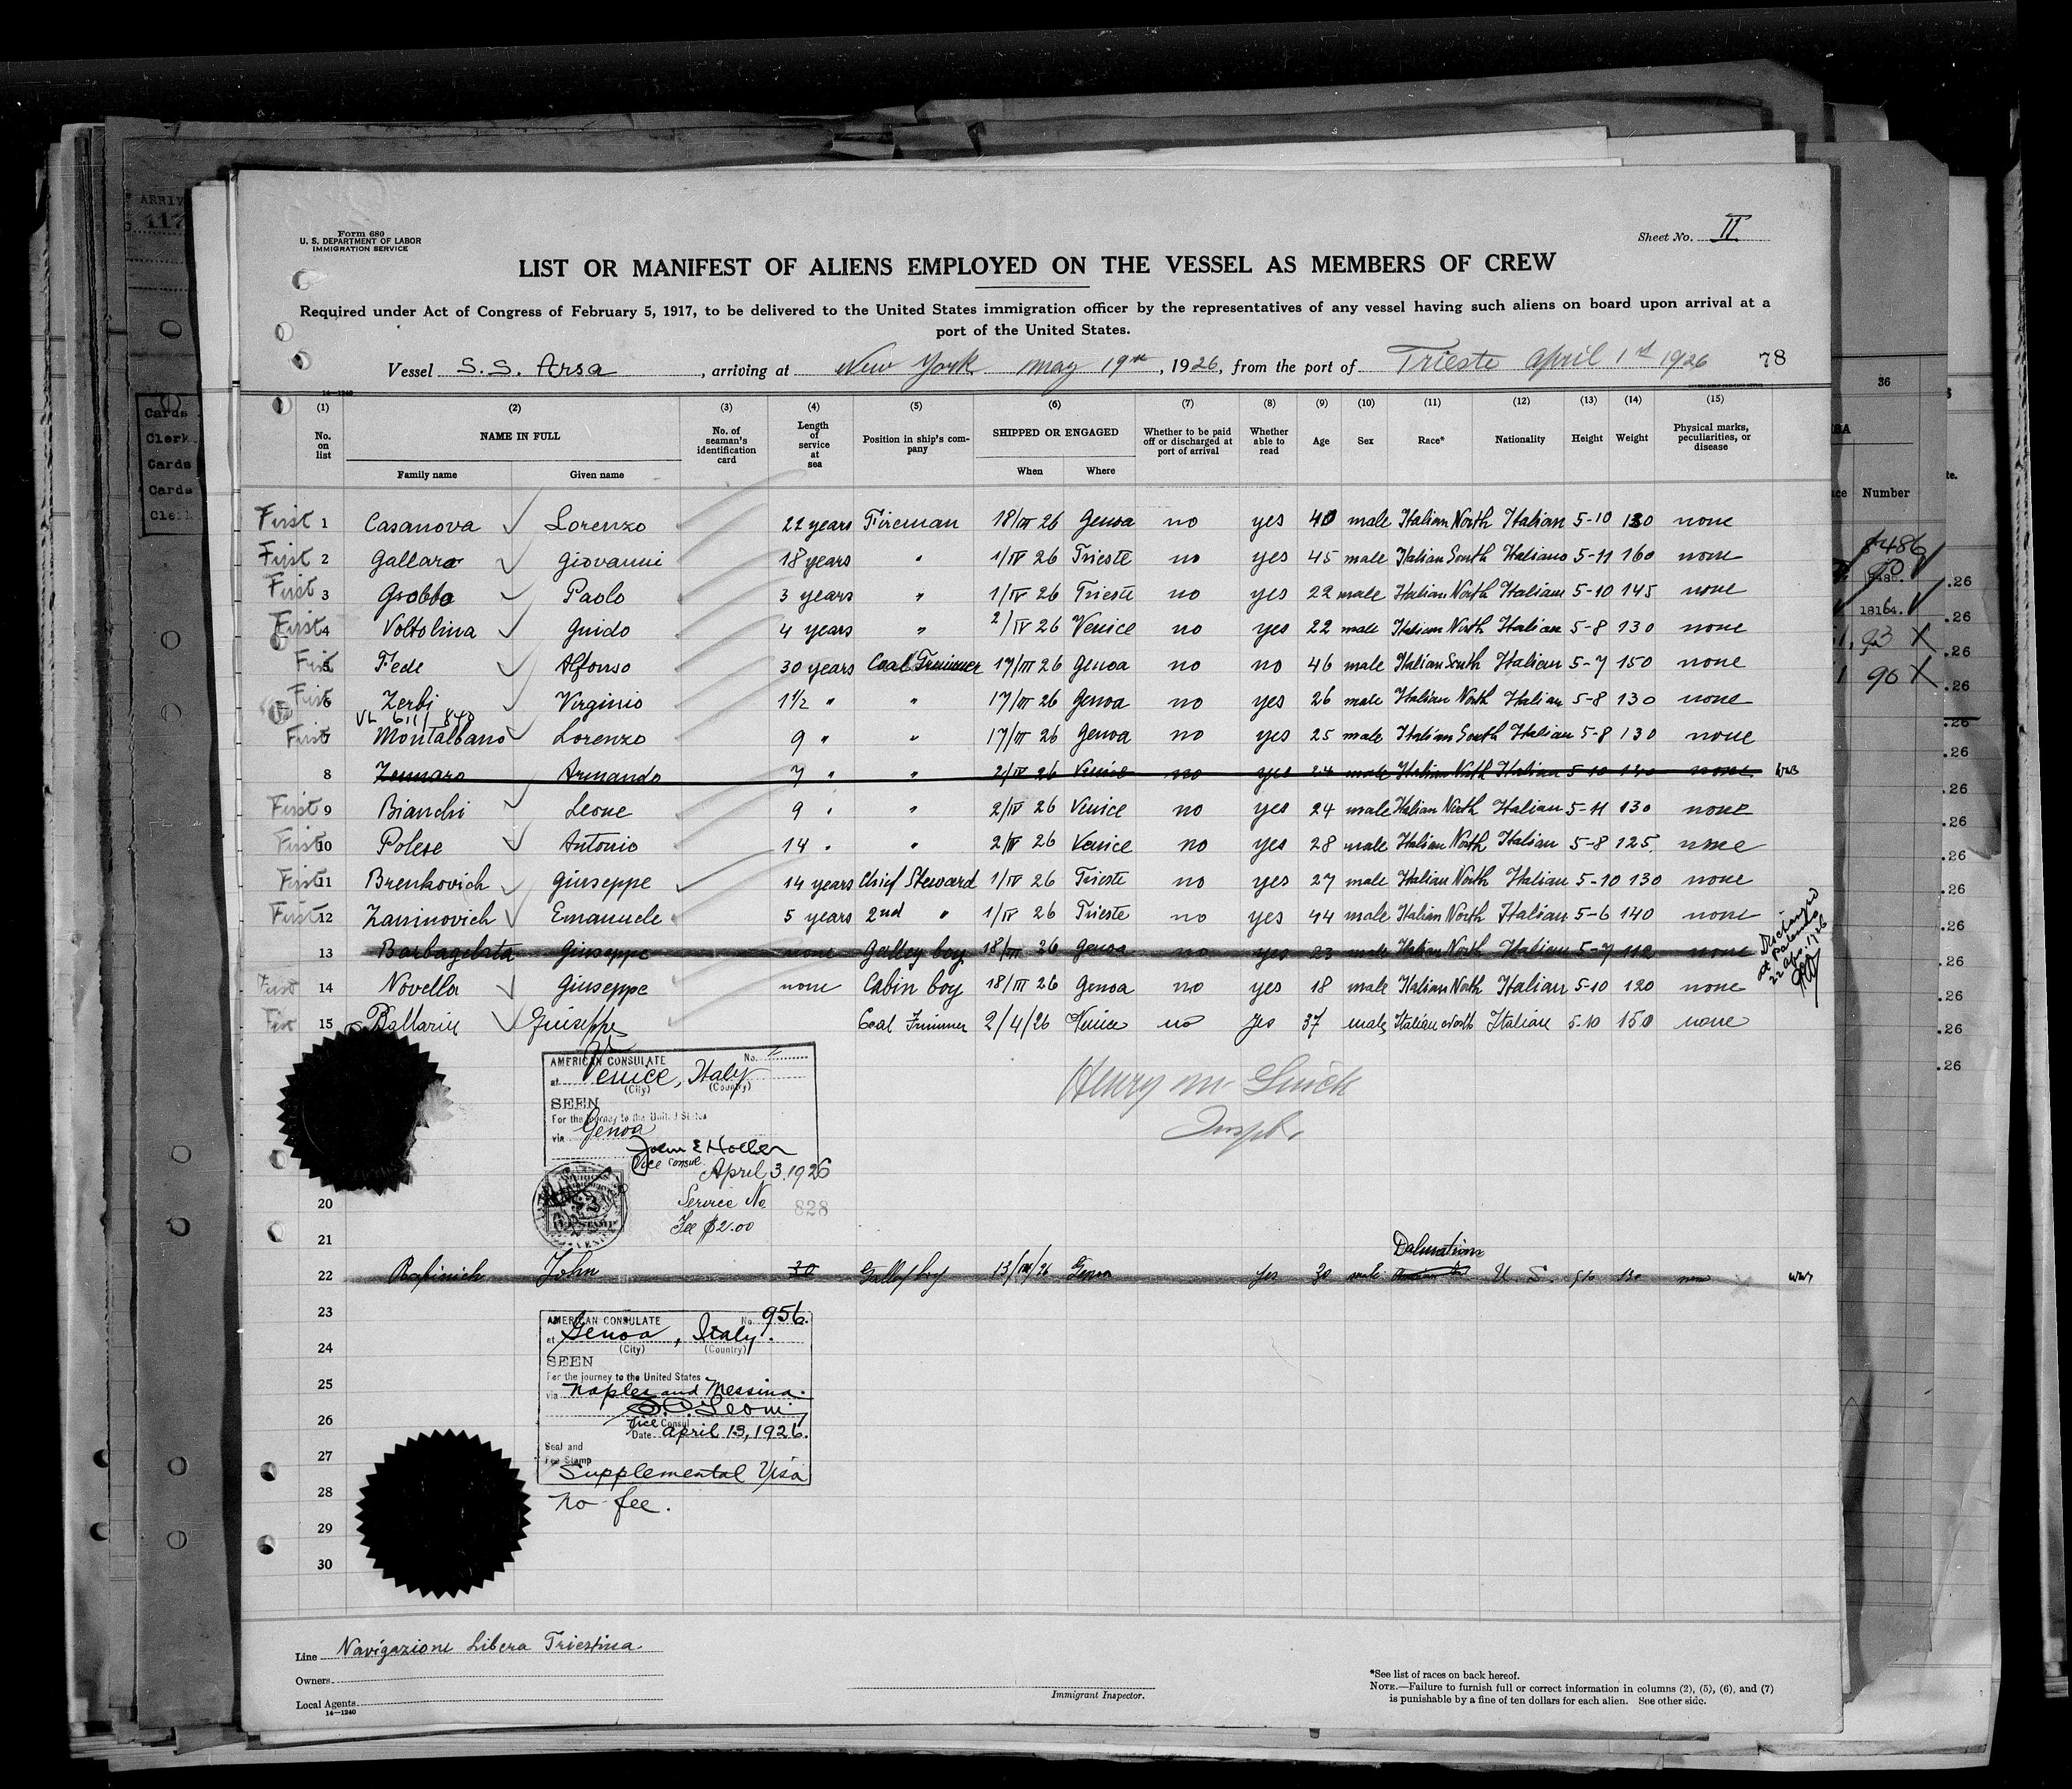 Form 689
U. S. DEPARTMENT OF LABOR
IMMIGRATION SERVICE
Sheet No. II
LIST OR MANIFEST OF ALIENS EMPLOYED ON THE VESSEL AS MEMBERS OF CREW
Required under Act of Congress of February 5, 1917, to be delivered to the United States immigration officer by the representatives of any vessel having such aliens on board upon arrival at a
port of the United States.
Vessel S.S. Arsa, arriving at New York May 19th, 1926, from the port of Trieste April 1st 1926 78
14-1240
(1) (2) (3) (4) (5) (6) (7) (8) (9) (10) (11) (12) (13) (14) (15)
No. on list NAME IN FULL Family name Given name No. of seaman's identification card Length of service at sea Position in ship's company SHIPPED OR ENGAGED When Where Whether to be paid off or discharged at port of arrival Whether able to read Age Sex Race* Nationality Height Weight Physical marks, peculiarities, or disease
First 1 Casanova Lorenzo 22 years Fireman 18/III 26 Genoa no yes 40 male Italian North Italian 5-10 130 none
First 2 Gallaro Giovanni 18 years " 1/IV 26 Trieste no yes 45 male Italian South Italian 5-11 160 none
First 3 Grobbo Paolo 3 years " 1/IV 26 Trieste no yes 22 male Italian North Italian 5-10 145 none
First 4 Voltolina Guido 4 years " 2/IV 26 Venice no yes 22 male Italian North Italian 5-8 130 none
First 5 Fede Alfonso 30 years Coal Trimmer 17/III 26 Genoa no no 46 male Italian South Italian 5-7 150 none
First 6 Zerbi Virginio 1 1/2 " " 17/III 26 Genoa no yes 26 male Italian North Italian 5-8 130 none
VL 611/840
First 7 Montalbano Lorenzo 9 " " 17/III 26 Genoa no yes 25 male Italian South Italian 5-8 130 none
8 Zennaro Armando 7 " " 2/IV 26 Venice no yes 24 male Italian North Italian 5-10 130 none
First 9 Bianchi Leone 9 " " 2/IV 26 Venice no yes 24 male Italian North Italian 5-11 130 none
First 10 Polese Antonio 14 " " 2/IV 26 Venice no yes 28 male Italian North Italian 5-8 125 none
First 11 Brenkovich Giuseppe 14 years Chief Steward 1/IV 26 Trieste no yes 27 male Italian North Italian 5-10 130 none
First 12 Zaninovich Emanuele 5 years 2nd " 1/IV 26 Trieste no yes 44 male Italian North Italian 5-6 140 none
13 Barbagelata Giuseppe none Galley boy 18/III 26 Genoa no yes 23 male Italian North Italian 5-7 112 none
Discharged at Palermo 22 Apr. 1926
First 14 Novella Giuseppe none Cabin boy 18/III 26 Genoa no yes 18 male Italian North Italian 5-10 120 none
First 15 Ballarin Giuseppe Coal Trimmer 2/4/26 Venice no yes 37 male Italian North Italian 5-10 150 none
AMERICAN CONSULATE No.
at Venice, Italy
(City) (Country)
SEEN
For the journey to the United States
via Genoa
Vice Consul
April 3, 1926
Service No. 828
Fee $2.00
Henry M.
Inspt.
20
21
Dalmatian
22 John 30 Galley boy 13/IV/26 Genoa yes 30 male U. S. 5 10 130 none
23
24
25
26
27
28
29
30
AMERICAN CONSULATE No. 956.
at Genoa, Italy.
(City) (Country)
SEEN
For the journey to the United States
via Naples and Messina.
Vice Consul
Date April 13, 1926.
Seal and
Fee Stamp
Supplemental Visa
No fee.
Line Navigazione Libera Triestina
Owners
Local Agents
14—1240
Immigrant Inspector.
*See list of races on back hereof.
NOTE.—Failure to furnish full or correct information in columns (2), (5), (6), and (7)
is punishable by a fine of ten dollars for each alien. See other side.
36
Number